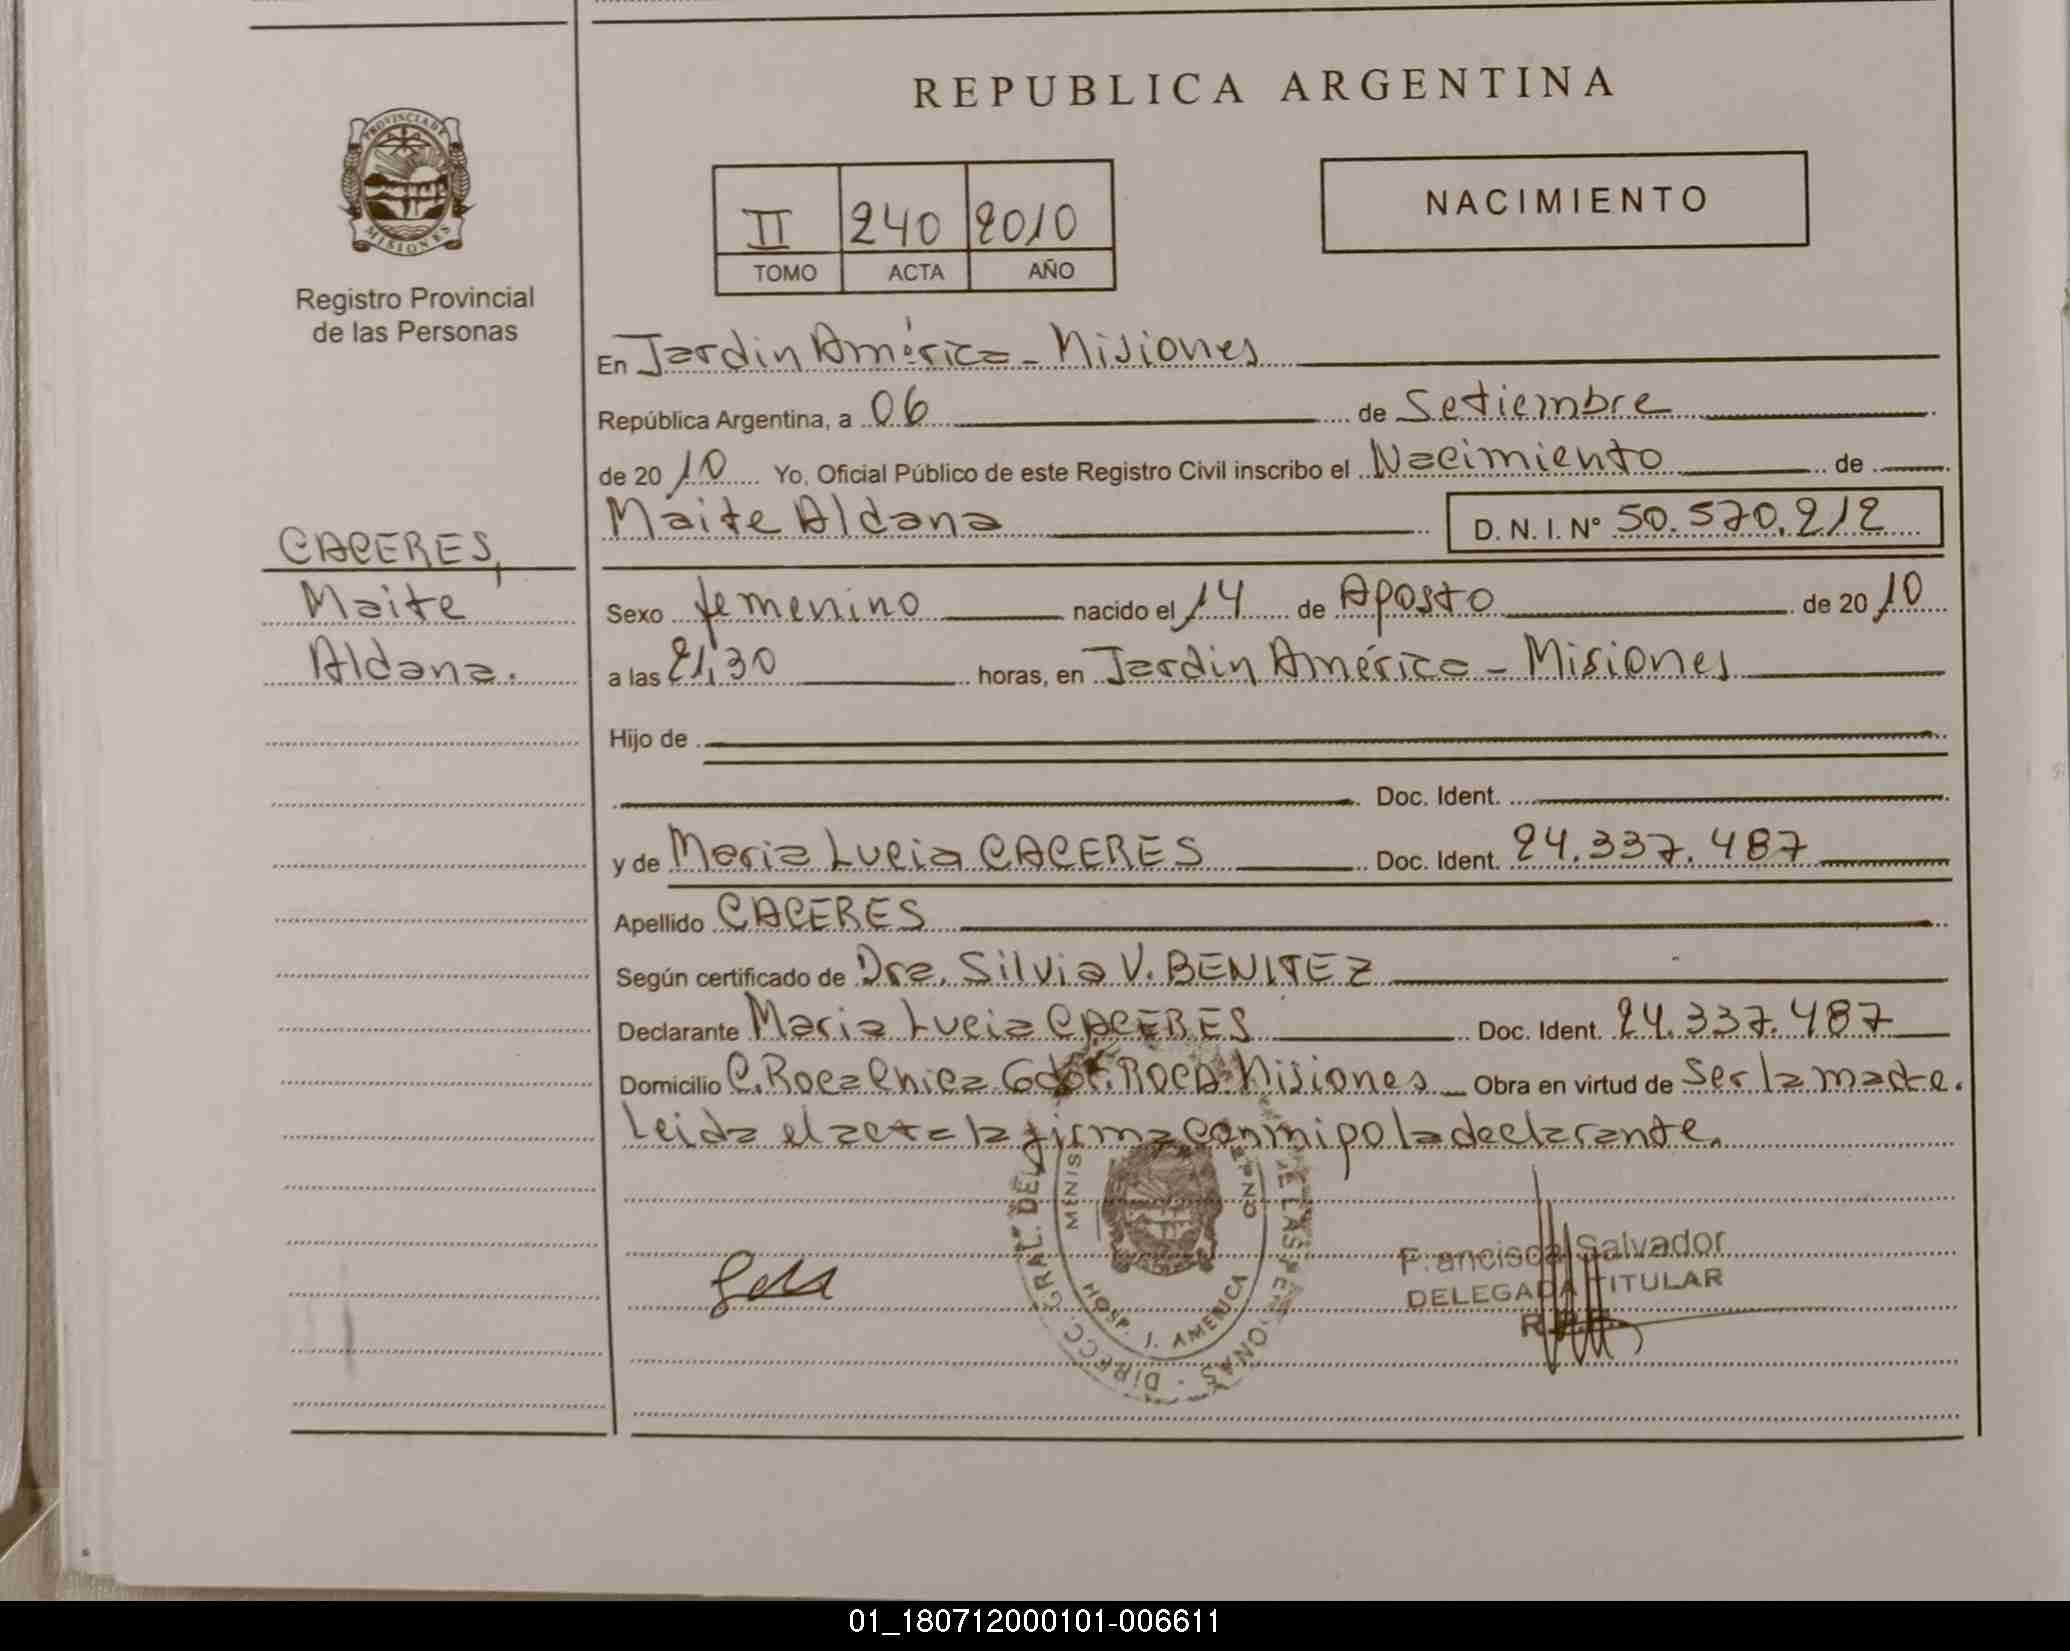 REPUBLICA ARGENTINA
PROVINCIA DE
MISIONES
Registro Provincial
de las Personas
II 240 2010
TOMO ACTA AÑO
NACIMIENTO
En Jardin América - Misiones
República Argentina, a 06 de Setiembre
de 20 10 Yo, Oficial Público de este Registro Civil inscribo el Nacimiento de
Maite Aldana D. N. I. Nº 50.570.212
CACERES,
Maite
Aldana.
Sexo femenino nacido el 14 de Agosto de 20 10
a las 21,30 horas, en Jardin América - Misiones
Hijo de
Doc. Ident.
y de Maria Lucia CACERES Doc. Ident. 24.337.487
Apellido CACERES
Según certificado de Dra. Silvia V. BENITEZ
Declarante Maria Lucia CACERES Doc. Ident. 24.337.487
Domicilio C. Roca Chica Gdor. ROCA. Misiones Obra en virtud de Ser la madre.
Leida el acta la firma conmigo la declarante.
DIRECC. GRAL. DEL DE LAS PERSONAS
MINIS
HOSP. J. AMERICA
Francisca Salvador
DELEGADA TITULAR
R.P.P.
01_180712000101-006611